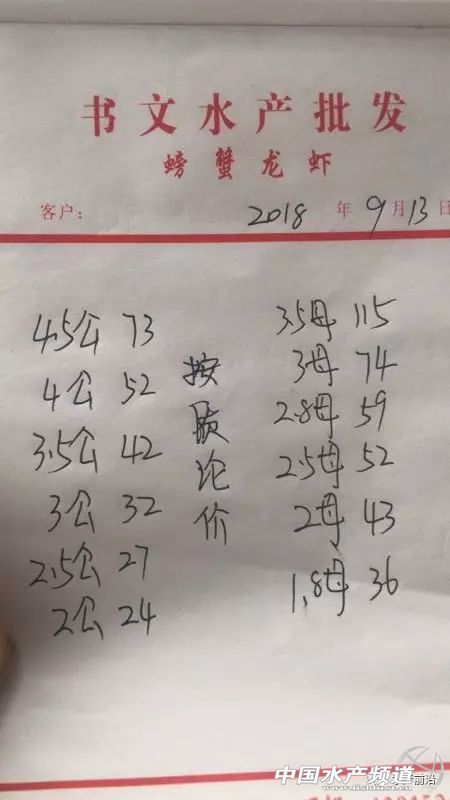 书文水产批发
螃蟹龙虾
客户： 2018 年 9 月 13 日
4.5公 73
4公 52
3.5公 42
3公 32
2.5公 27
2公 24
按质论价
3.5母 115
3母 74
2.8母 59
2.5母 52
2母 43
1.8母 36
中国水产频道
www.fishfirst.cn
前沿